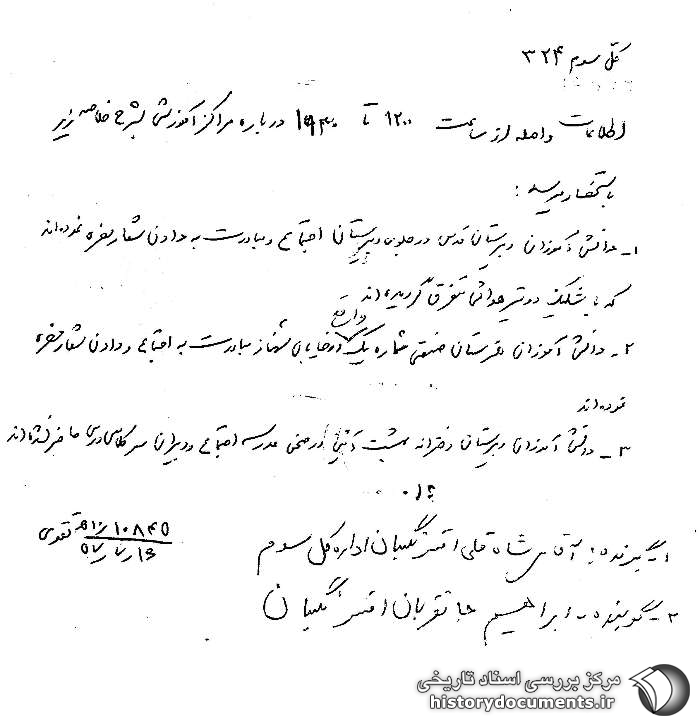 کل سوم ۳۲۴
اطلاعات واصله از ساعت ۱۲۰۰ تا ۱۹۳۰ درباره مراکز آموزشی بشرح خلاصه زیر
باستحضار میرسد :
۱- دانش آموزان دبیرستان قدس در جلوی دبیرستان اجتماع و مبادرت به دادن شعار مضره نموده‌اند
که با شلیک دو تیر هوائی متفرق گردیده‌اند
۲- دانش آموزان هنرستان صنعتی شماره یک واقع در خیابان شهناز مبادرت به اجتماع و دادن شعار مضره
نموده‌اند
۳- دانش آموزان دبیرستان دخترانه بهشت آئین در صحن مدرسه اجتماع و دبیران سر کلاس درس حاضر نشده‌اند
گیرنده : آقای شاه قلی افسر نگهبان اداره کل سوم
گوینده - ابراهیم افسر نگهبان
۱۰۸۴۵/ ۱۰ه‍ تقدسی
۵۷/۷/۱۶
مرکز بررسی اسناد تاریخی
historydocuments.ir